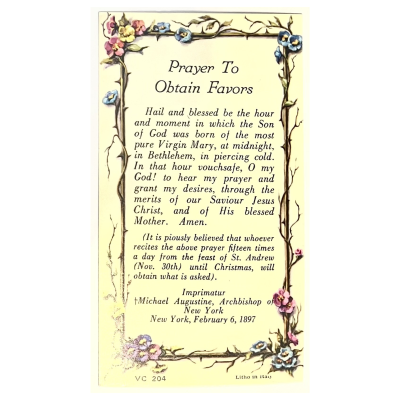 Prayer To
Obtain Favors
Hail and blessed be the hour
and moment in which the Son
of God was born of the most
pure Virgin Mary, at midnight,
in Bethlehem, in piercing cold.
In that hour vouchsafe, O my
God! to hear my prayer and
grant my desires, through the
merits of our Saviour Jesus
Christ, and of His blessed
Mother. Amen.
(It is piously believed that whoever
recites the above prayer fifteen times
a day from the feast of St. Andrew
(Nov. 30th) until Christmas, will
obtain what is asked).
Imprimatur
†Michael Augustine, Archbishop of
New York
New York, February 6, 1897
VC 204
Litho in Italy